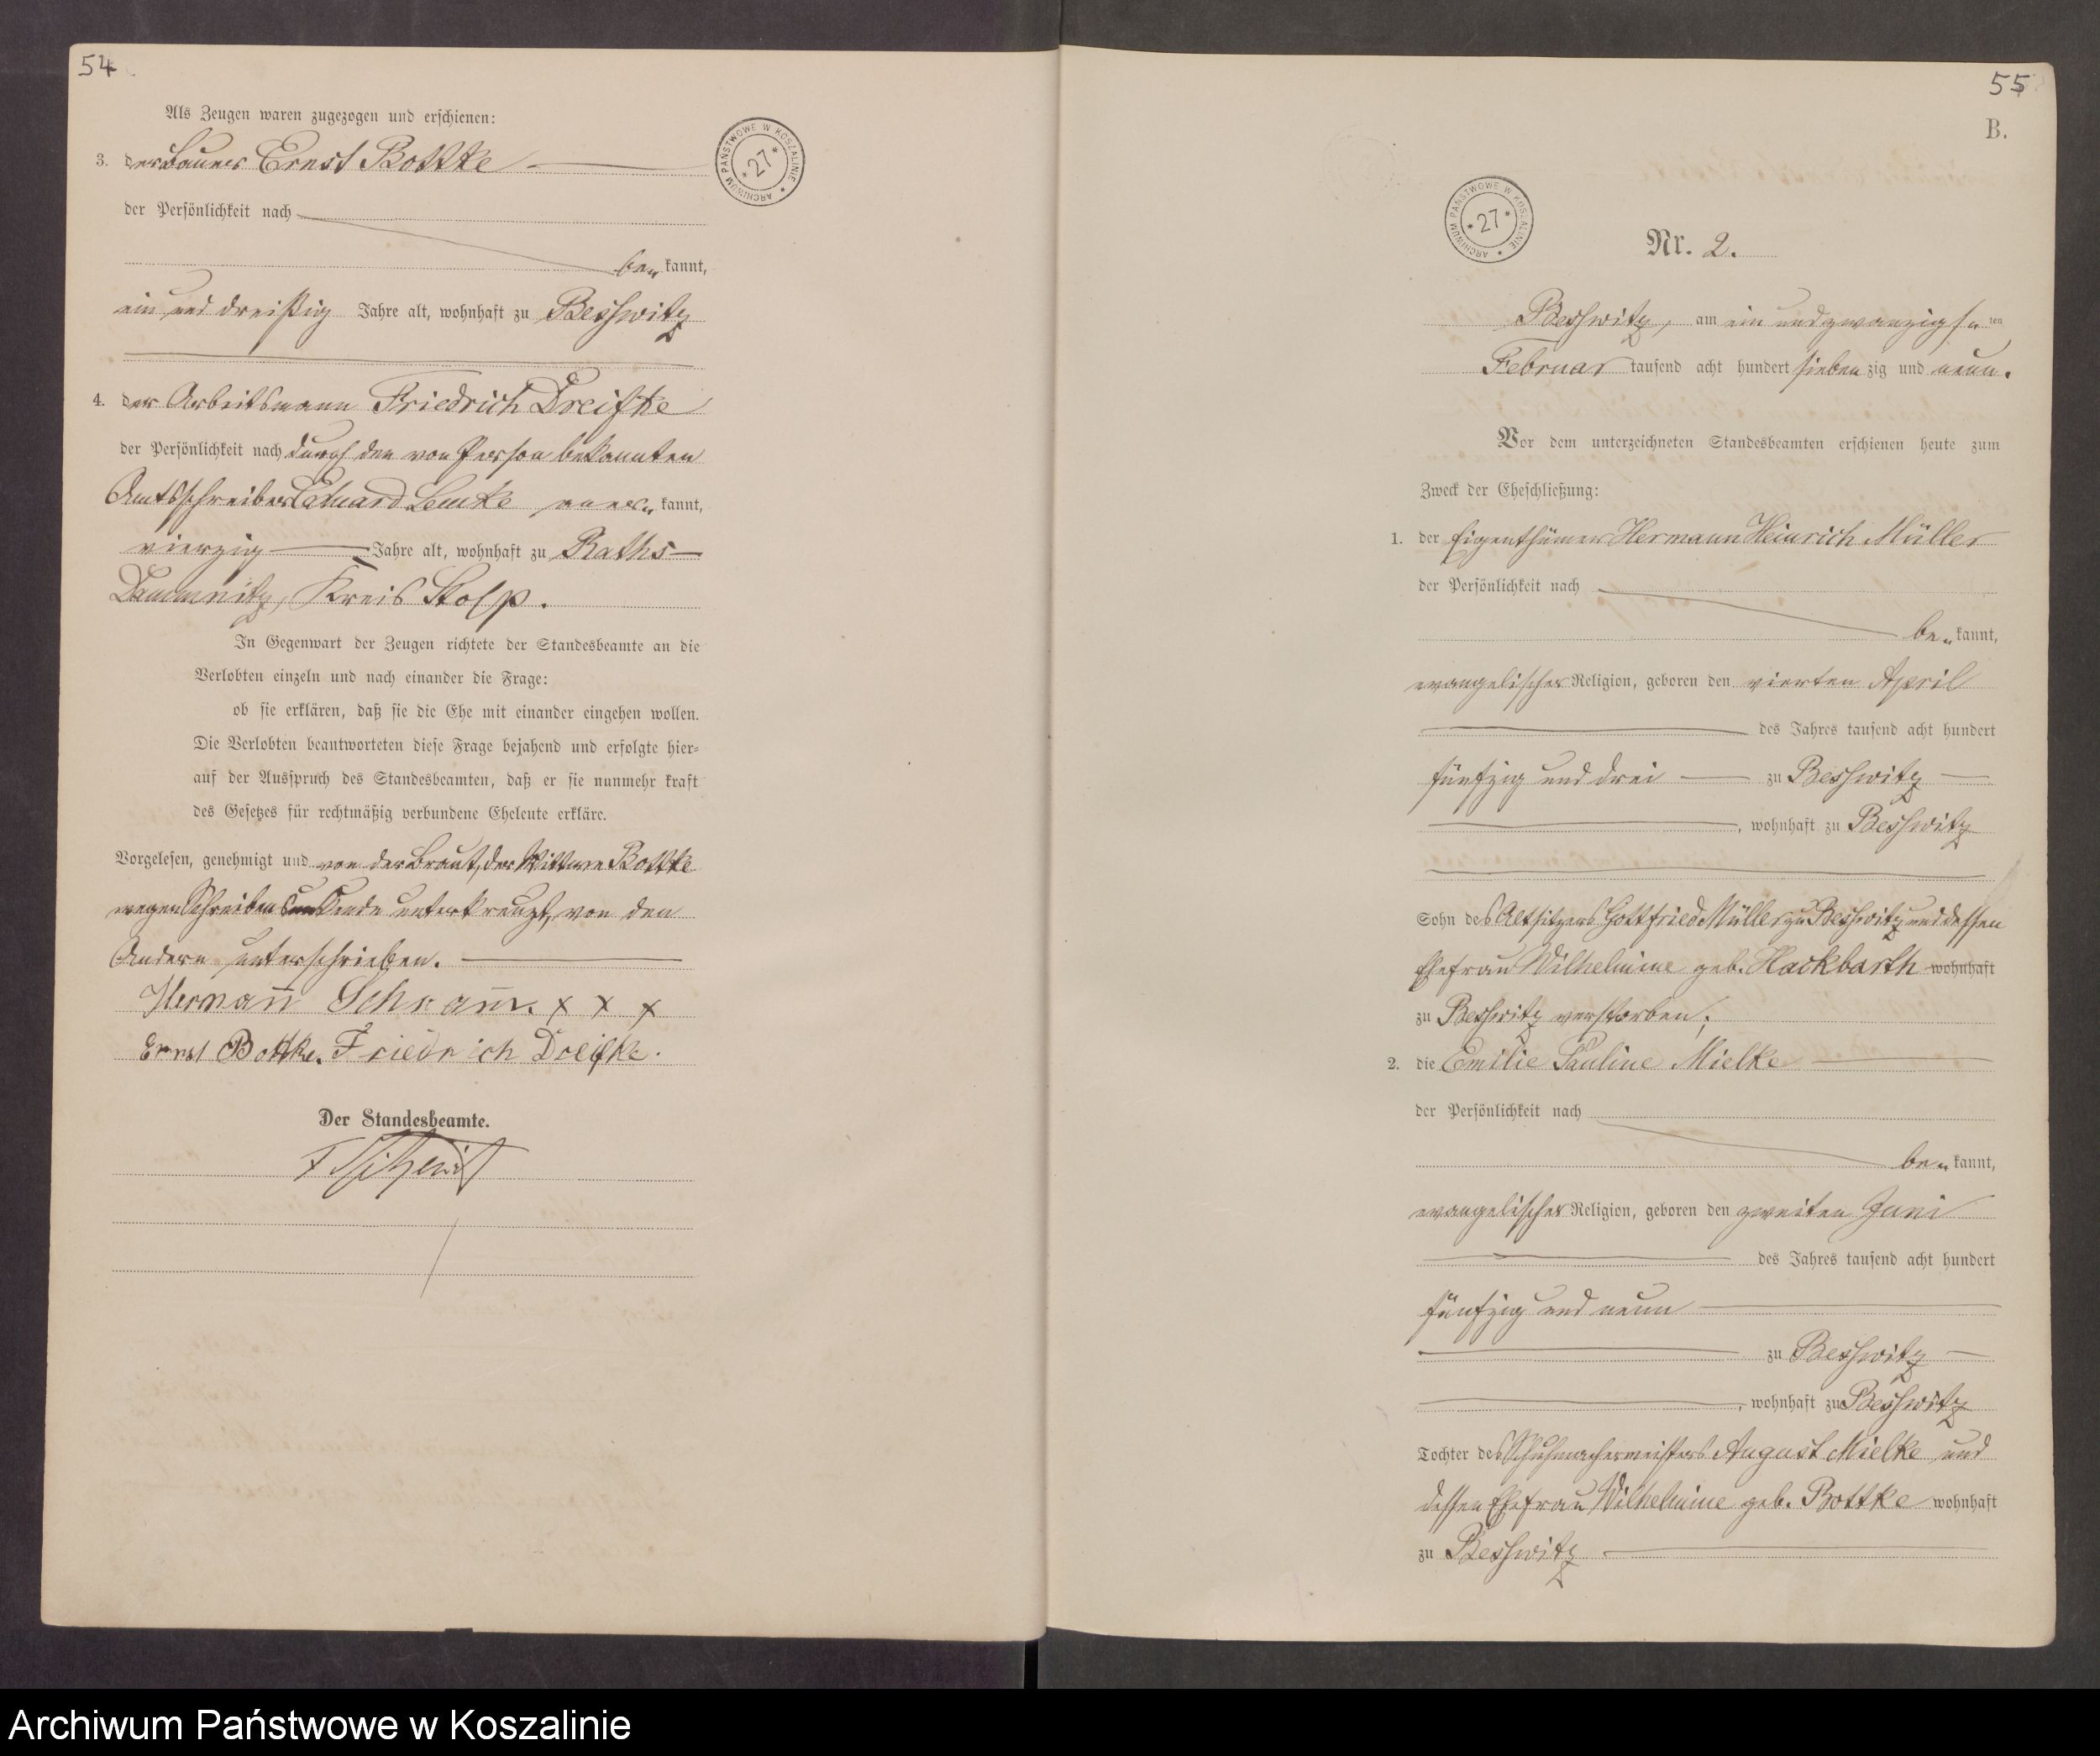 54
Als Zeugen waren zugezogen und erschienen:
3. der Bauer Ernst Bottke
der Persönlichkeit nach
be„ kannt,
ein und dreißig Jahre alt, wohnhaft zu Besswitz
4. der Arbeitsmann Friedrich Dreifke
der Persönlichkeit nach durch den von Person bekannten
Amtsschreiber Eduard Lemke aner„ kannt,
vierzig Jahre alt, wohnhaft zu Raths-
Damnitz, Kreis Stolp.
In Gegenwart der Zeugen richtete der Standesbeamte an die
Verlobten einzeln und nach einander die Frage:
ob sie erklären, daß sie die Ehe mit einander eingehen wollen.
Die Verlobten beantworteten diese Frage bejahend und erfolgte hier-
auf der Ausspruch des Standesbeamten, daß er sie nunmehr kraft
des Gesetzes für rechtmäßig verbundene Eheleute erkläre.
Vorgelesen, genehmigt und von der Braut, der Wittwe Bottke
wegen Schreibens unkunde unterkreuzt, von den
Andern unterschrieben.
Hermann Schramm. x x x
Ernst Bottke. Friedrich Dreifke.
Der Standesbeamte.
ARCHIWUM PAŃSTWOWE W KOSZALINIE
* 27 *
55
B.
ARCHIWUM PAŃSTWOWE W KOSZALINIE
* 27 *
Nr. 2.
Besswitz, am ein und zwanzigs„ ten
Februar tausend acht hundert siebenzig und neun.
Vor dem unterzeichneten Standesbeamten erschienen heute zum
Zweck der Eheschließung:
1. der Eigenthümer Hermann Heinrich Müller
der Persönlichkeit nach
be„ kannt,
evangelischer Religion, geboren den vierten April
des Jahres tausend acht hundert
fünfzig und drei zu Besswitz
, wohnhaft zu Besswitz
Sohn des Altsitzers Gottfried Müller zu Besswitz und dessen
Ehefrau Wilhelmine geb. Hackbarth wohnhaft
zu Besswitz verstorben;
2. die Emilie Pauline Mielke
der Persönlichkeit nach
be„ kannt,
evangelischer Religion, geboren den zweiten Juni
des Jahres tausend acht hundert
fünfzig und neun
zu Besswitz
, wohnhaft zu Besswitz
Tochter des Schuhmachermeisters August Mielke und
dessen Ehefrau Wilhelmine geb. Bottke wohnhaft
zu Besswitz
Archiwum Państwowe w Koszalinie